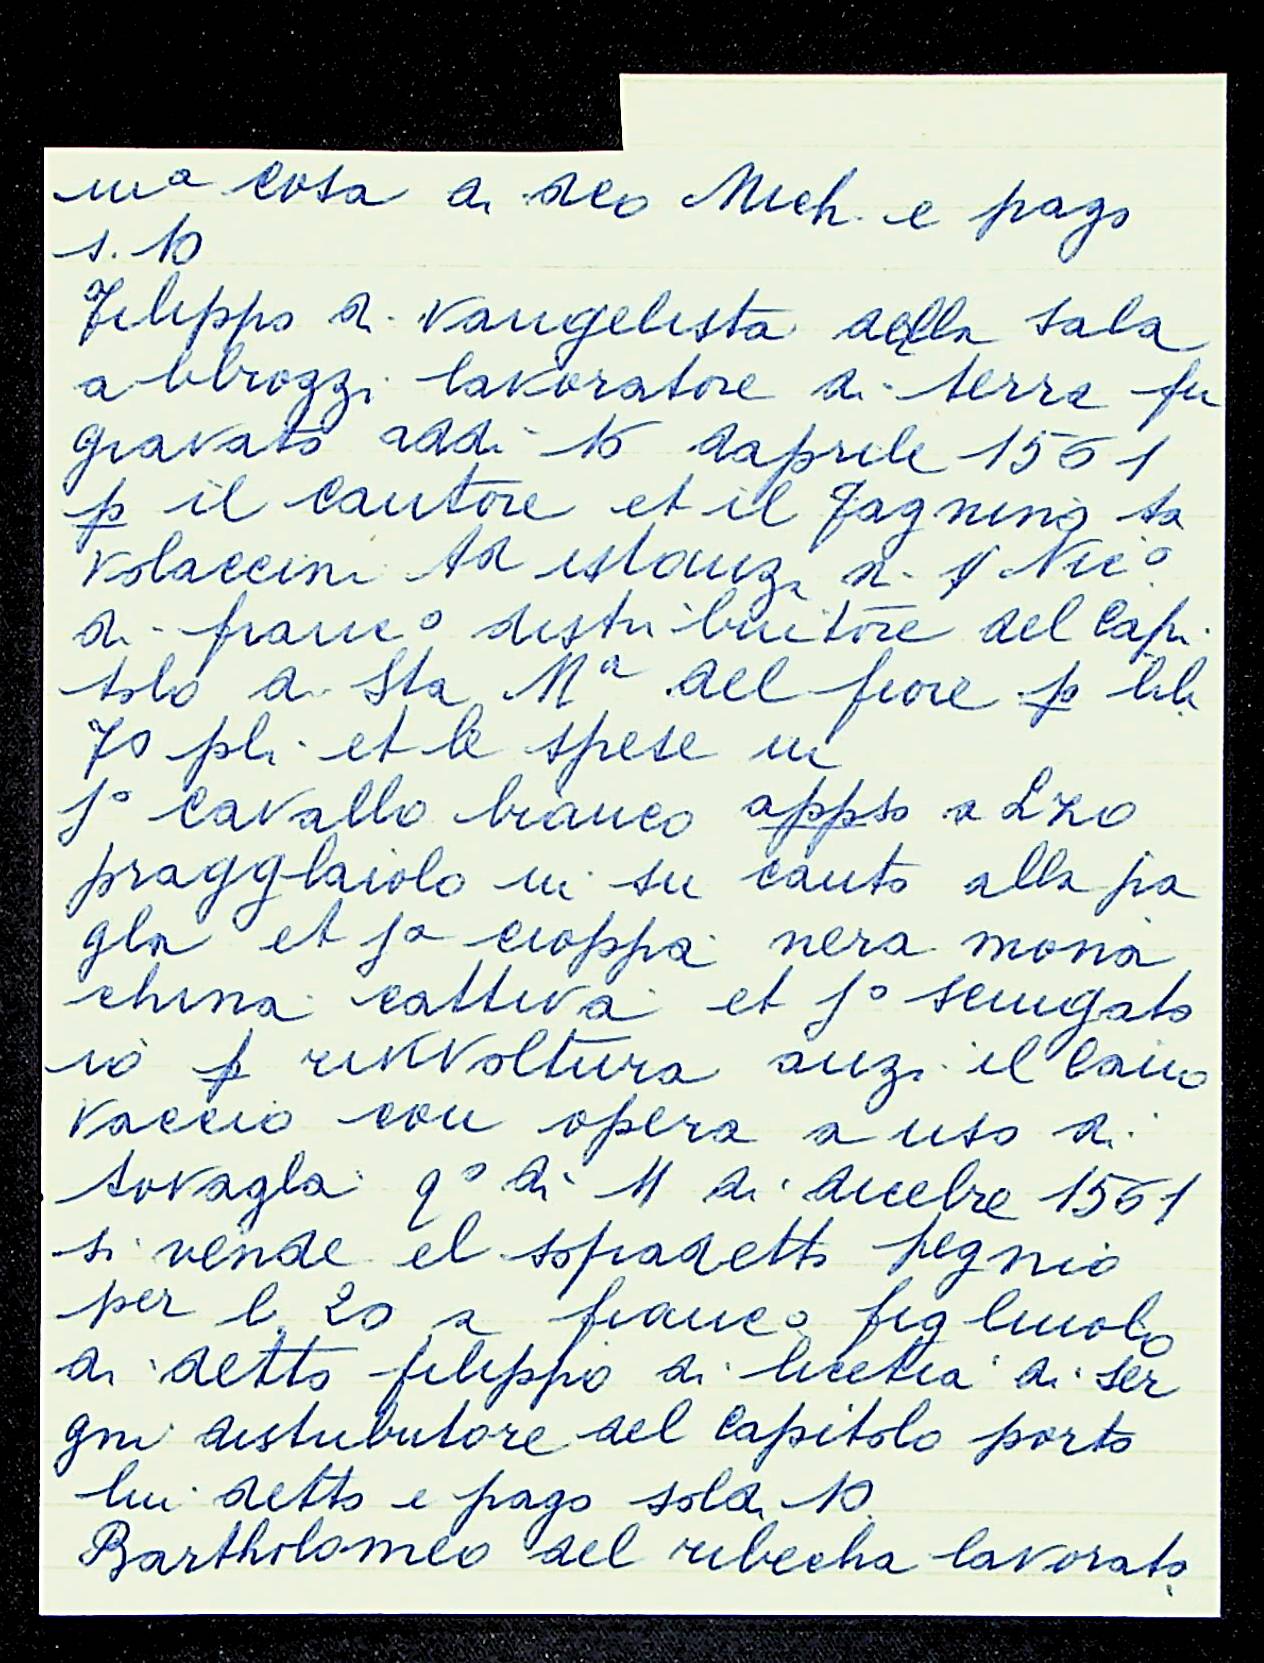 ma cosa di sco Mich. e pago
s. 10
Filippo di Vangelista della sala
abbrozzi lavoratore di terra fu
gravato addi 16 daprile 1561
p il cantore et il Fagnino ta
volaccini Ad istanzi di s Nic°
di franc° distribuitore del Capi
tolo di Sta Mª del fiore p lib.
70 pli et le spese in
1° cavallo bianco appso a Lzo
pragglaiolo in su canto alla pa
gla et 1ª cioppa nera mona
china cattiva et 1° sciugato
io p rivoltura anzi il cano
vaccio con opera a uso di
tovagla q° di 11 di dicebre 1561
si vende el sopradetto pegnio
per l. 20 a franc° figliuolo
di detto filippo di licetia di ser
gni distributore del Capitolo porto
lui detto e pago sold. 10.
Bartholomeo del ribecha lavorato